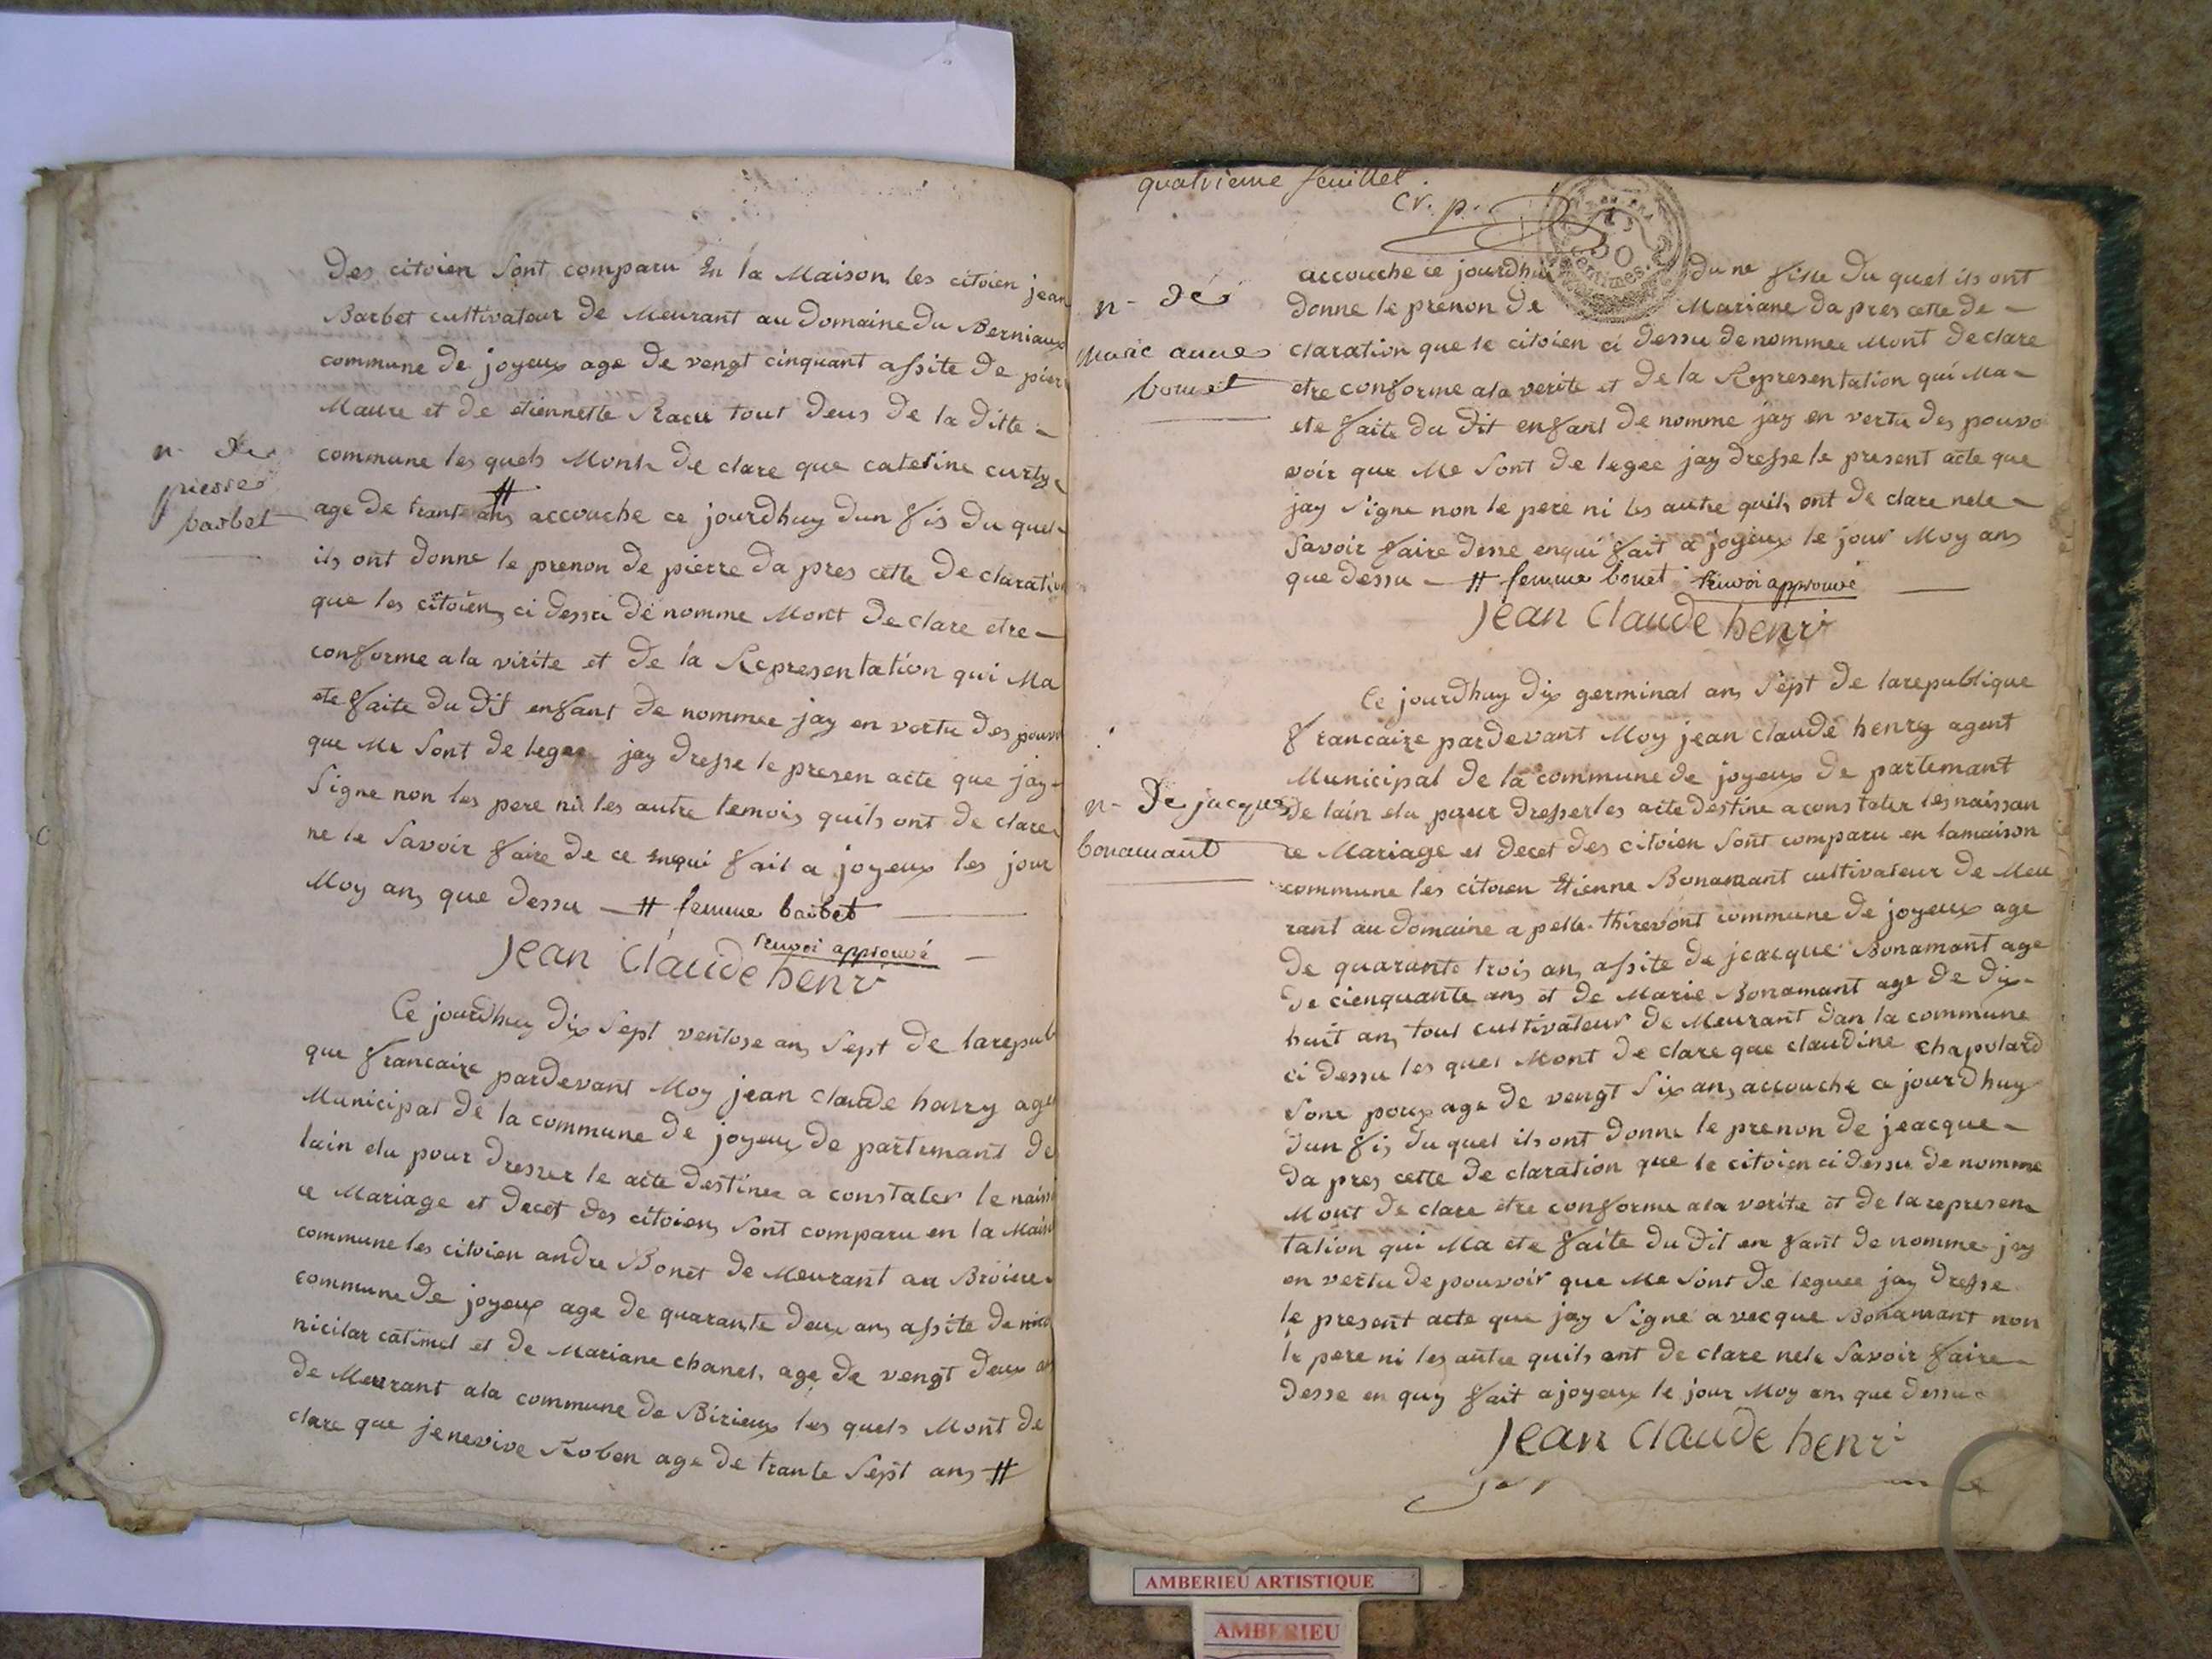 Des citoien Sont comparu En la Maison les citoien jean
Barbet cultivateur de Meurant au domaine du Berniaux
commune de joyeux age de vengt cinquant assite de pier
Maure et de etiennette Racu tout deus de la ditte
n- de
pierre
barbet
commune les quels Monte de clare que caterine curty
age de trante ans # accouche ce jourdhuy dun fis du quel
ils ont donne le prenon de pierre da pres cette de claration
que les citoien ci dessu de nomme Mont de clare etre
conforme a la virite et de la Representation qui Ma
ete faite du dit enfant de nommee jay en vertu des pouvo
que Me Sont de legee jay dresse le presen acte que jay
Signe non les pere ni les autre temois quils ont de clare
ne le Savoir faire de ce enqui fait a joyeux les jour
Moy ans que dessu # femme barbet
renvoi approuvé
Jean Claude henri
Ce jourdhuy dix Sept ventose ans Sept de larepub
que francaize pardevant Moy jean claude henry age
Municipal de la commune de joyeux de partemant de
lain elu pour dresser le acte destinee a constater le naiss
ce Mariage et decet des citoiens Sont comparu en la Mais
commune les citoien andre Bonet de Meurant au Broiere
commune de joyeux age de quarante deux ans assite de
nicilar catimel et de Mariane chanel age de vengt deux ans
de Meurant ala commune de Birieux les quels Mont de
clare que jenevive Roben age de trante Sept ans #
quatrieme feuillet
cr. p.
50
centimes
accouche ce jourdhui dune fille du quel ils ont
n- de
marie anne
bonet
donne le prenon de Mariane da pres cette de
claration que le citoien ci dessu denommee Mont declare
etre conforme ala verite et de la Representation qui Ma
ete faite du dit enfant de nomme jay en vertu des pouvo
voir que Me Sont de legee jay dresse le present acte que
jay Signe non le pere ni les autre quils ont de clare nele
Savoir faire desse enqui fait a joyeux le jour Moy ans
que dessu # femme bonet renvoi approuvé
Jean Claude henri
Ce jourdhuy dix germinal ans Sept de larepublique
francaize pardevant Moy jean claude henry agent
Municipal de la commune de joyeux de partemant
n- de jacques
bonamant
de lain elu pour dresser les acte destine a constater les naissan
ce Mariage et decet des citoien Sont comparu en lamaison
commune les citoien Etienne Bonamant cultivateur de Meu
rant au domaine a pelle thirevont commune de joyeux age
de quarante trois ans assite de jeacque Bonamant age
de cienquante ans et de Marie Bonamant age de dix
huit ans tout cultivateur de Meurant dan la commune
ci dessu les quel Mont de clare que claudine chapolard
sone poux age de vengt Six ans accouche ce jourdhuy
dun fis du quel ils ont donne le prenon de jeacque
da pres cette de claration que le citoien ci dessu de nomme
Mont de clare etre conforme ala verite et de la represen
tation qui Ma ete faite du dit en fant de nomme jay
en vertu de pouvoir que Me Sont de leguee jay dresse
le present acte que jay Signe a vecque Bonamant non
le pere ni les autre quils ont de clare nele Savoir faire
desse en quy fait a joyeux le jour Moy ans que dessu
Jean Claude henri
AMBERIEU ARTISTIQUE
AMBERIEU